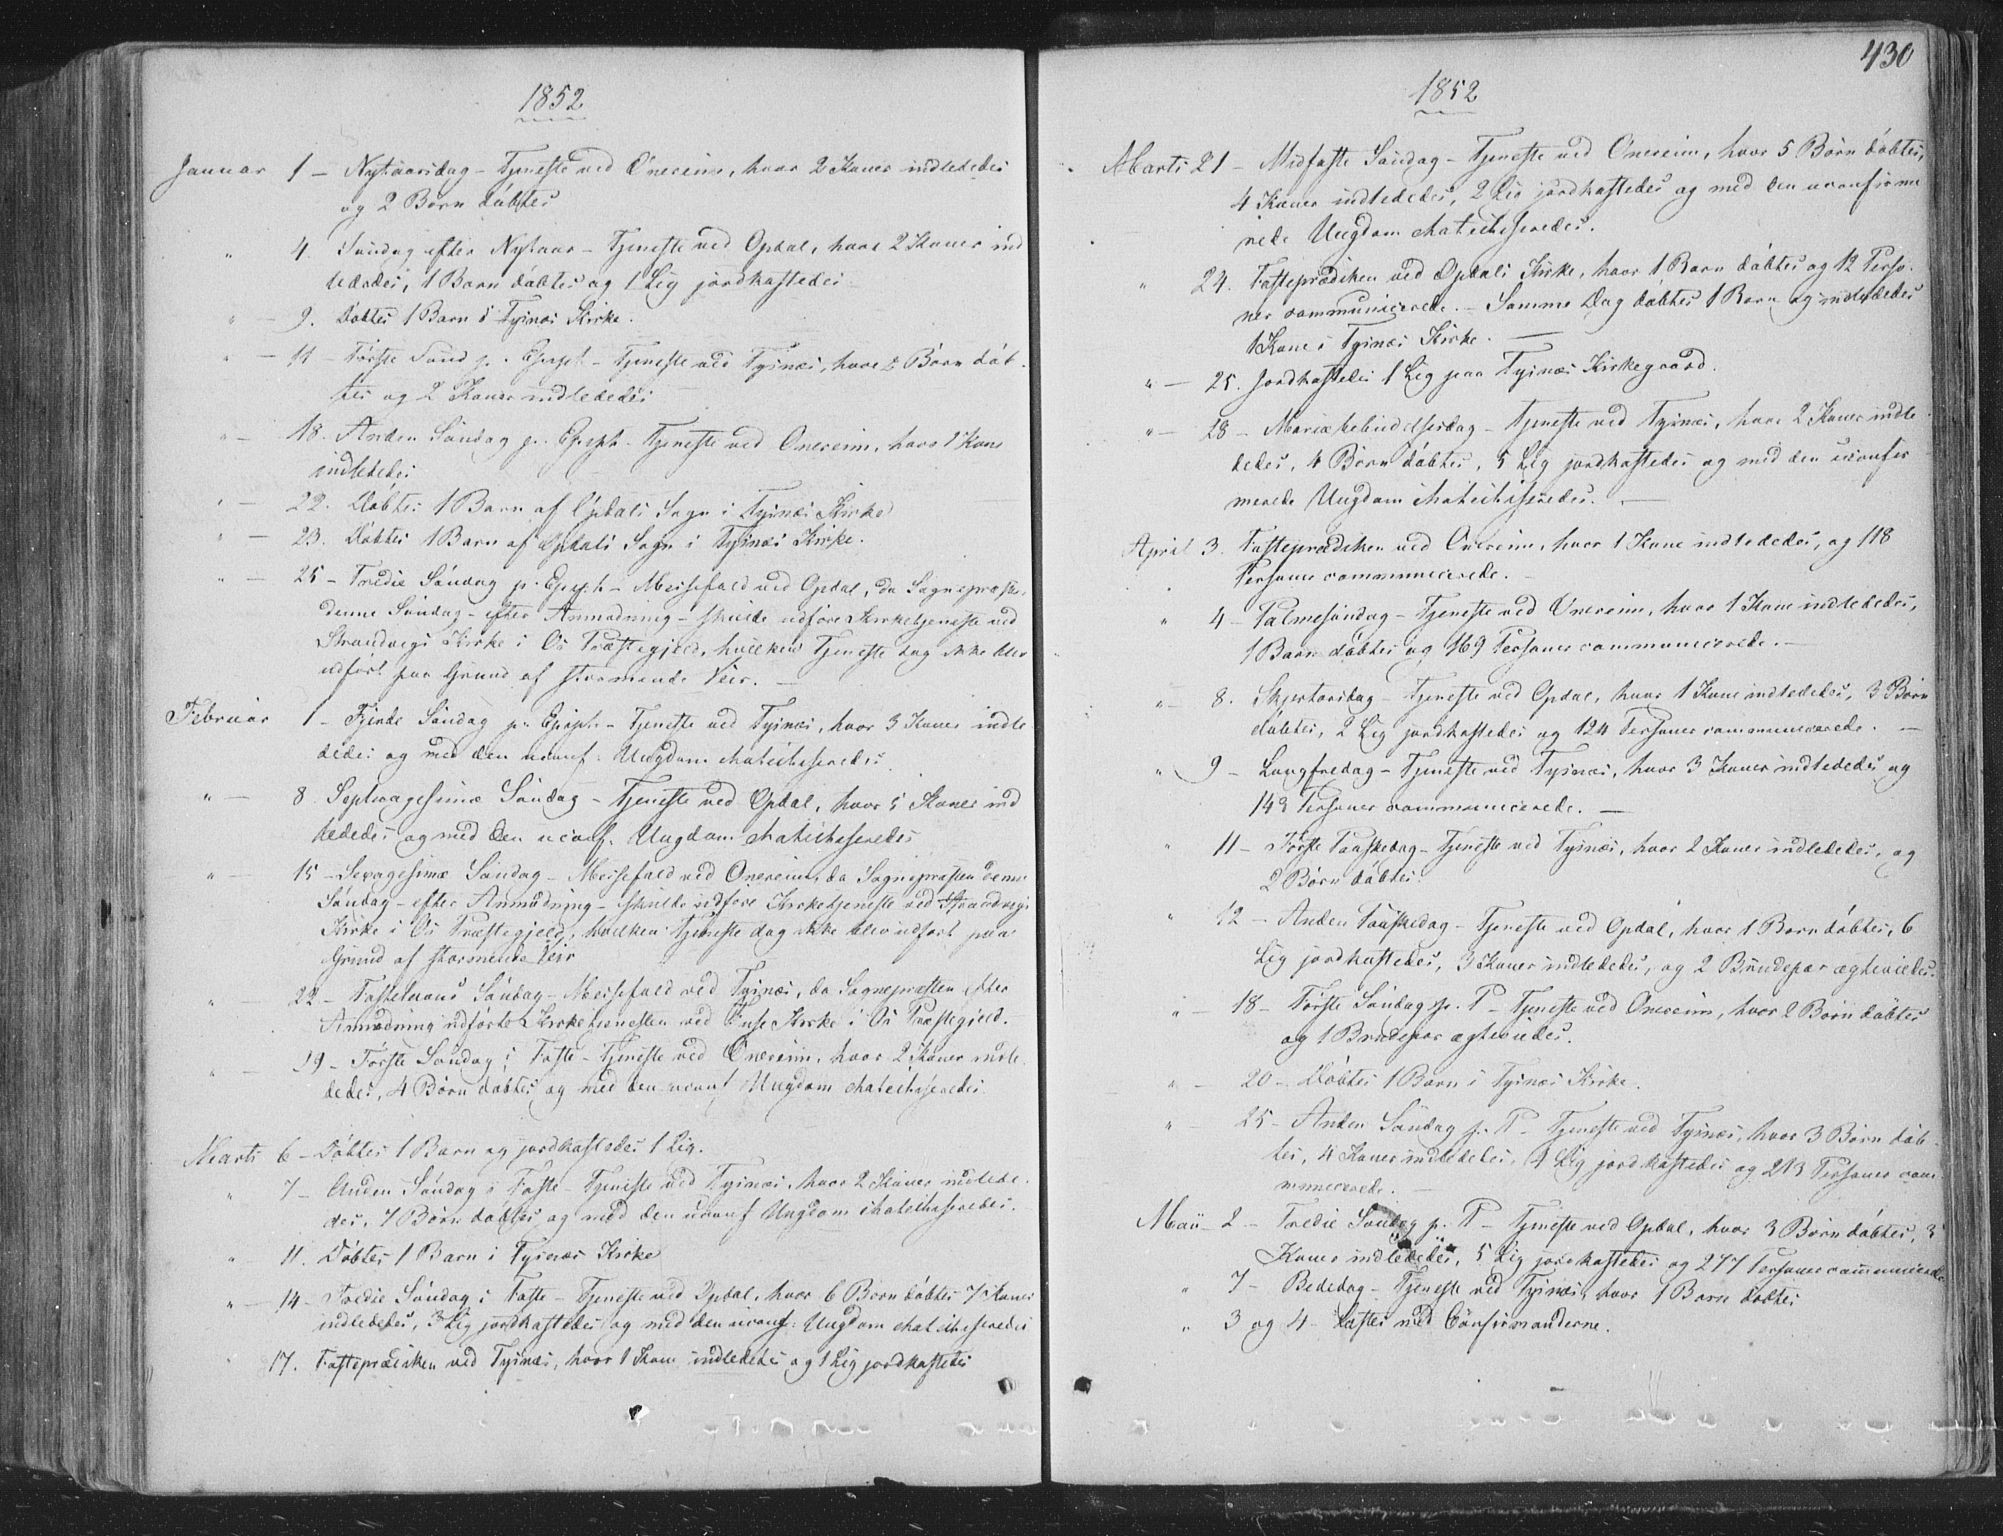 1852
Januar 1 – Nytaarsdag – Tjeneste ved Onereim, hvor 2 Koner indlededes
og 2 Børn døbtes
" 4. Søndag efter Nytaar – Tjeneste ved Opdal, hvor 2 Koner ind
lededes, 1 Barn døbtes og 1 Lig jordkastedes
" – 9. Døbtes 1 Barn i Tysnæs Kirke.
" – 11 – Første Sønd p. Epiph – Tjeneste ved Tysnæs, hvor Børn døb-
tes og 2 Koner indlededes
" – 18. Anden Søndag p. Epiph – Tjeneste ved Onereim, hvor 1 Kone
indlededes
" – 22. Døbtes 1 Barn af Opdals Sogn i Tysnæs Kirke
" – 23. Døbtes 1 Barn af Opdals Sogn i Tysnæs Kirke.
" – 25 – Tredie Søndag p. Epiph – Messefald ved Opdal, da Sognepræsten
denne Søndag – efter Anmodning – skulde udføre Kirketjeneste ved
Strandvigs Kirke i Os Præstegjeld, hvilken Tjeneste dog ikke blev
udført paa Grund af stormende Veir. –
Februar 1 – Fjerde Søndag p. Epiph – Tjeneste ved Tysnæs, hvor 3 Koner indle
dedes og med den uconf. Ungdom chatechiseredes.
" – 8 Septuagesimæ Søndag – Tjeneste ved Opdal, hvor 5 Koner ind
lededes og med den uconf. Ungdom chatechiseredes
" – 15 – Sexagesimæ Søndag – Messefald ved Onereim, da Sognepræsten denne
Søndag – efter Anmodning – skulde udføre Kirketjeneste ved Strandvigs
Kirke i Os Præstegjeld, hvilken Tjeneste dog ikke blev udført paa
Grund af stormende Veir
" 22 – Fastelavns Søndag – Messefald ved Tysnæs, da Sognepræsten efter
Anmodning udførte Kirketjenesten ved Fuse Kirke i Os Præstegjeld.
" – 29 – Første Søndag i Faste – Tjeneste ved Onereim, hvor 2 Koner indle
dedes, 4 Børn døbtes og med den uconf Ungdom chatechiseredes
Marts 6 – Døbtes 1 Barn og jordkastedes 1 Lig.
" 7 – Anden Søndag i Faste – Tjeneste ved Tysnæs, hvor 2 Koner indlede
des, 7 Børn døbtes og med den uconf Ungdom chatechiseredes.
" 11. Døbtes 1 Barn i Tysnæs Kirke
" – 14 – Tredie Søndag i Faste – Tjeneste ved Opdal, hvor 6 Børn døbtes 7 Koner
indlededes, 3 Lig jordkastedes og med den uconf: Ungdom chatechiseredes
" 17. Fasteprædiken ved Tysnæs, hvor 1 Kone indlededes og 1 Lig jordkastedes
430
1852
Marts 21 – Midfaste Søndag – Tjeneste ved Onereim, hvor 5 Børn døbtes,
4 Koner indlededes, 2 Lig jordkastedes og med den uconfirme
rede Ungdom chatechiseredes.
" 24. Fasteprædiken ved Opdals Kirke, hvor 1 Barn døbtes og 12 Perso-
ner communicerede. – Samme Dag døbtes 1 Barn og indlededes
1 Kone i Tysnæs Kirke. –
" – 25. Jordkastedes 1 Lig paa Tysnæs Kirkegaard.
" – 28 – Mariæ Bebudelsesdag – Tjeneste ved Tysnæs, hvor 2 Koner indle
dedes, 4 Børn døbtes, 5 Lig jordkastedes og med den uconfir
merede Ungdom chatechiseredes. –
April 3. Fasteprædiken ved Onereim, hvor 1 Kone indlededes, og 118
Personer communicerede. –
" 4 – Palmesøndag – Tjeneste ved Onereim, hvor 1 Kone indlededes,
1 Barn døbtes og 169 Personer communicerede. –
" – 8. Skjertorsdag – Tjeneste ved Opdal, hvor 1 Kone indlededes, 3 Børn
døbtes, 2 Lig jordkastedes og 124 Personer communicerede. –
" 9 – Langfredag – Tjeneste ved Tysnæs, hvor 3 Koner indlededes og
149 Personer communicerede. –
" 11 – Første Paaskedag – Tjeneste ved Tysnæs, hvor 2 Koner indlededes, og
2 Børn døbtes.
" 12 – Anden Paaskedag – Tjeneste ved Opdal, hvor 1 Barn døbtes, 6
Lig jordkastedes, 3 Koner indlededes, og 2 Brudepar ægteviedes.
" – 18 – Første Søndag p. P – Tjeneste ved Onereim, hvor 2 Børn døbtes
og 1 Brudepar ægteviedes.
" – 20 – Døbtes 1 Barn i Tysnæs Kirke.
" – 25 – Anden Søndag p. P – Tjeneste ved Tysnæs, hvor 3 Børn døb-
tes, 4 Koner indlededes, 4 Lig jordkastedes og 213 Personer com
municerede. –
Maii – 2 – Tredie Søndag p. P – Tjeneste ved Opdal, hvor 3 Børn døbtes, 3
Koner indlededes, 5 Lig jordkastedes og 277 Personer communicerede
" 7 – Bededag – Tjeneste ved Tysnæs, hvor 1 Barn døbtes
" 3 og 4 – Læstes med Confirmanderne.